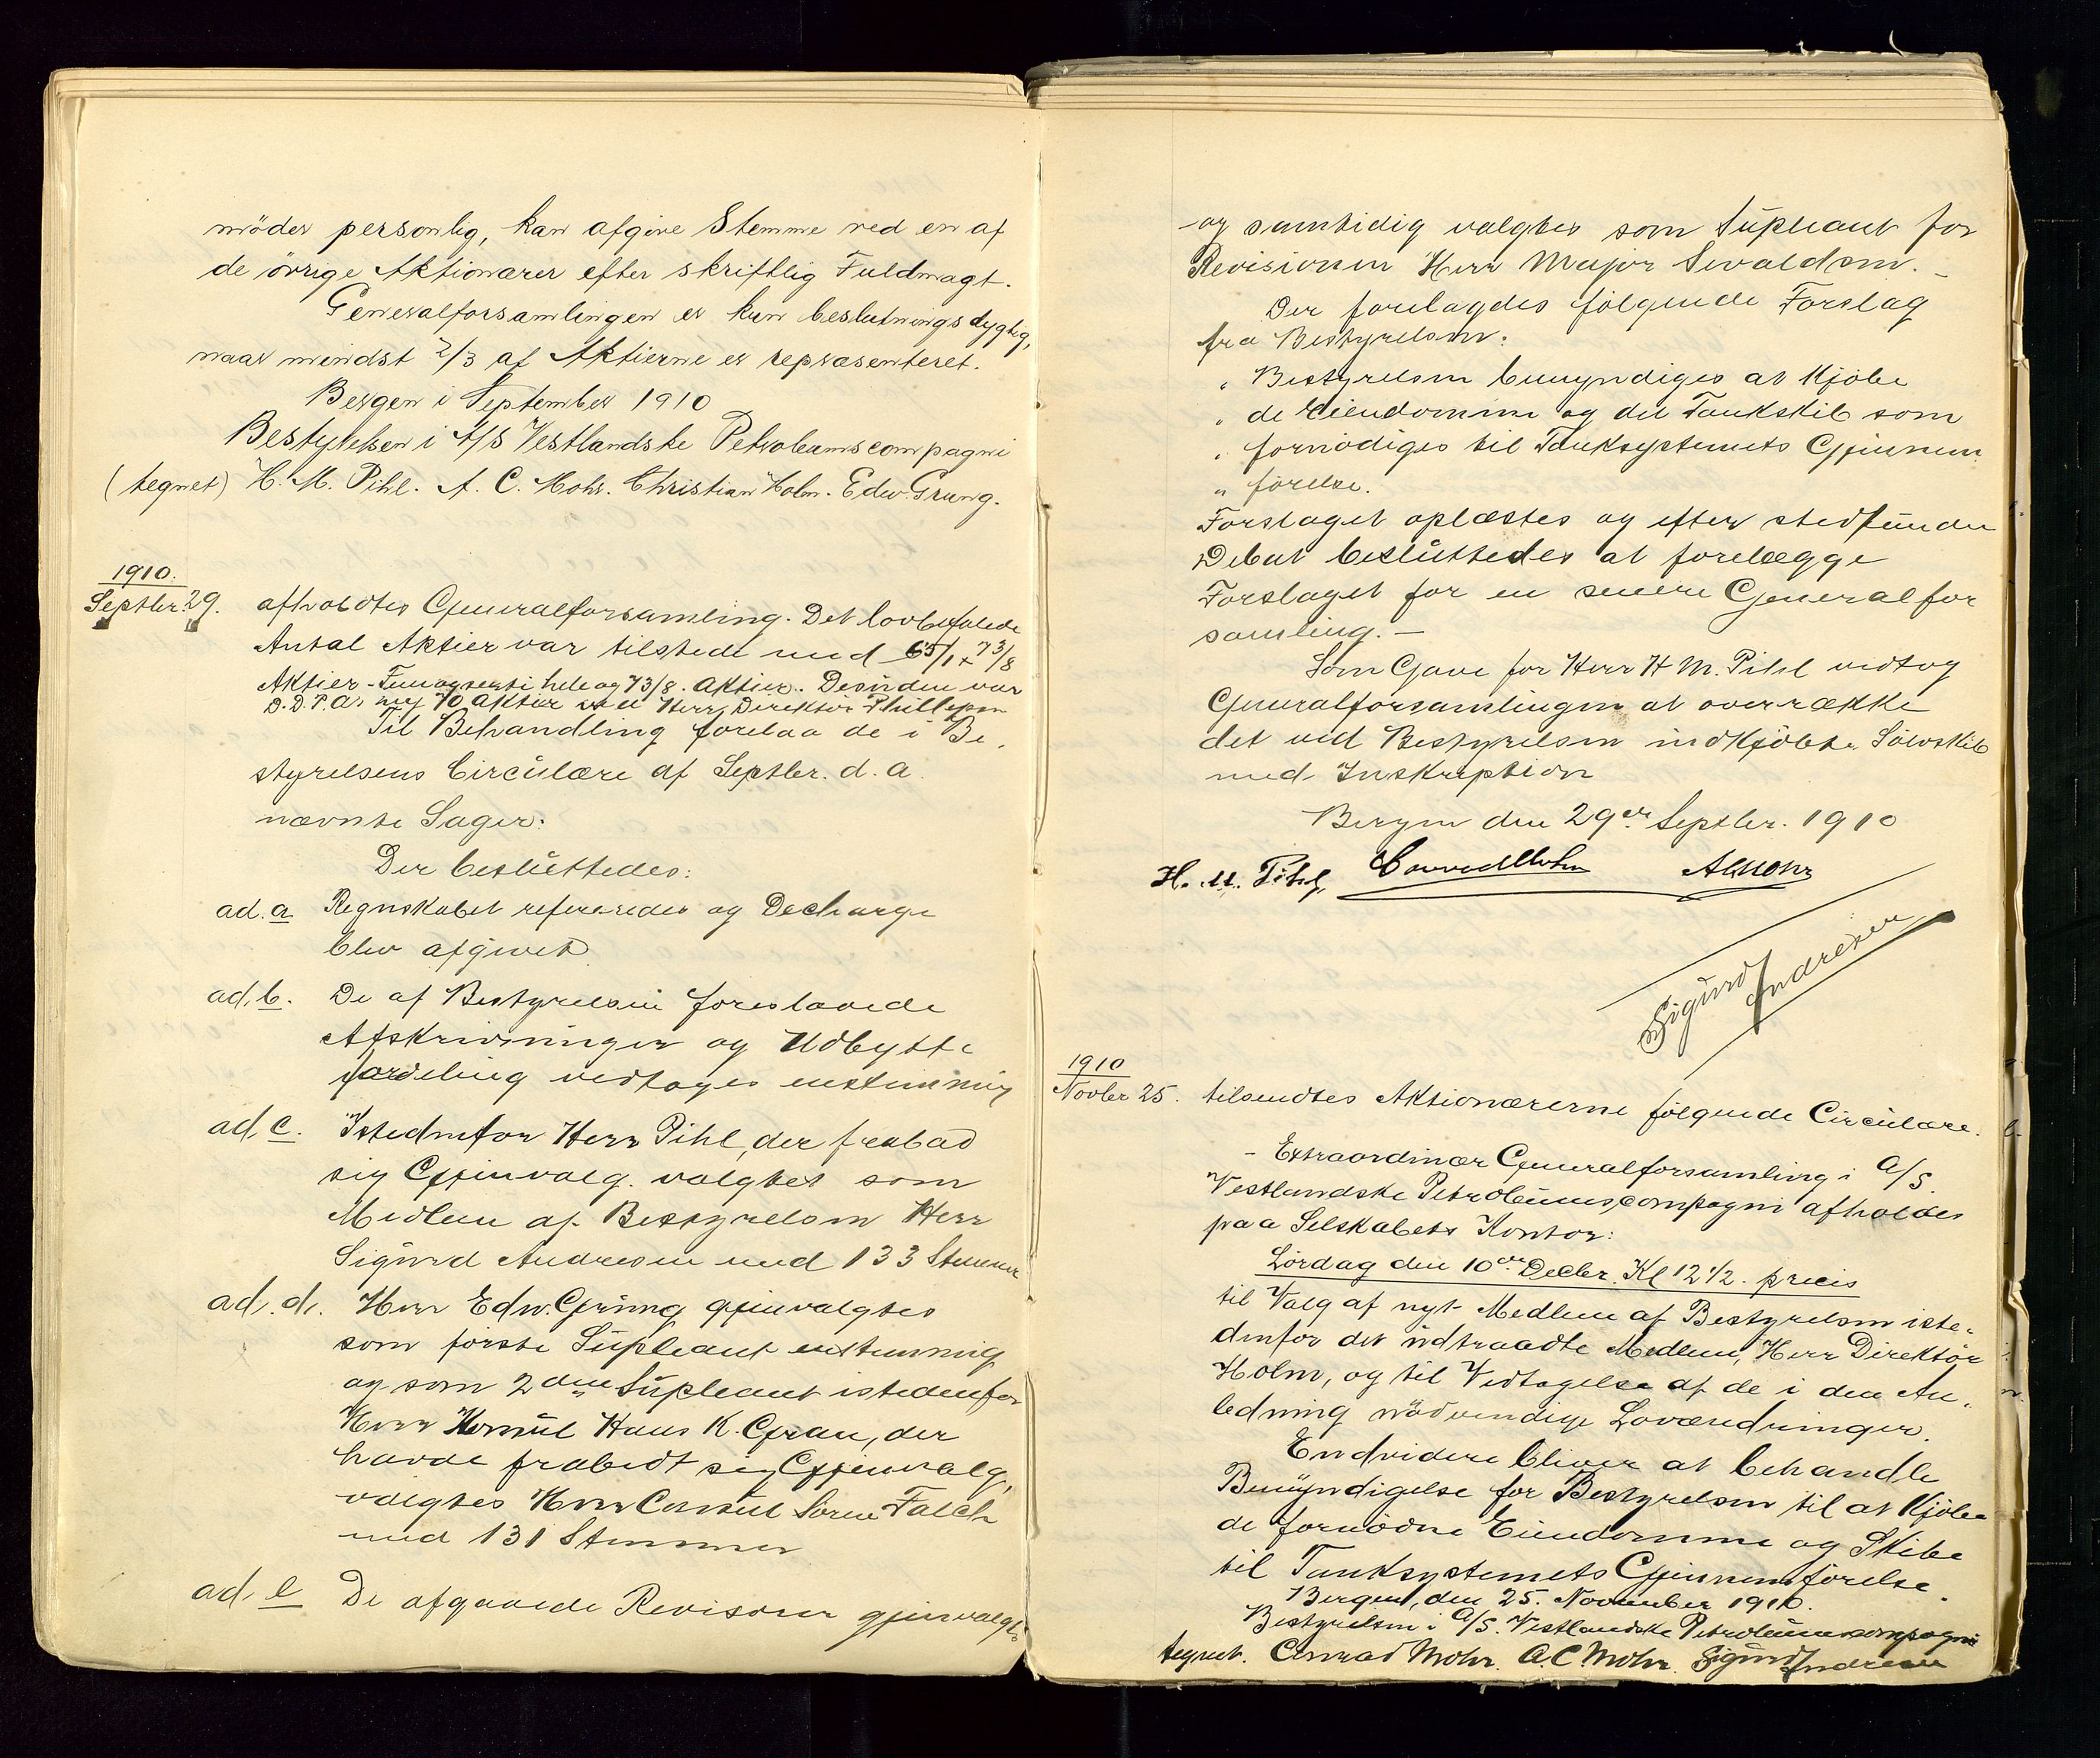 möder personlig, kan afgive Stemme ved en af
de övrige Aktionærer efter skriftlig Fuldmagt.
Generalforsamlingen er kun beslutningsdygtig,
naar mindst 2/3 af Aktierne er repræsenteret.
Bergen i September 1910
Bestyrelsen i A/S Vestlandske Petroleumscompagni
(tegnet) H. M. Pihl. A. C. Mohr. Christian Holm. Edw. Grung.
1910.
Septbr. 29. afholdtes Generalforsamling. Det lovbefalede
Antal Aktier var tilstede med 65/1 + 73/8
Aktier - hele og 73/8. Aktier. Desuden var
D. D. P. A. 70 Aktier ved Herr Direktör Phillipsen
Til Behandling forelaa de i Be,
styrelsens Circulære af Septbr. d. a.
nævnte Sager:
Der besluttedes:
ad. a Regnskabet refereredes og Decharge
blev afgivet
ad. b. De af Bestyrelsen foreslaaede
Afskrivninger og Udbytte
fordeling vedtoges enstemmig
ad. c. Istedenfor Herr Pihl, der frabad
sig Gjenvalg. valgtes som
Medlem af Bestyrelsen Herr
Sigurd Andresen med 133 Stemmer
ad. d. Herr Edw. Grung gjenvalgtes
som förste Supleant enstemmig
og som 2den Supleant istedenfor
Herr Konsul Hans K. Gran, der
havde frabedt sig Gjenvalg,
valgtes Herr Consul Soren Falch
med 131 Stemmer
ad. e De afgaaede Revisorer gjenvalgtes
og samtidig valgtes som Supleant for
Revisionen Herr Major Sivaldsen. -
Der forelagdes fölgende Forslag
fra Bestyrelsen:
" Bestyrelsen bemyndiges at Kjöbe
" de Eiendomme og det Tankskib som
" fornödiges til Tanksystemets Gjennem
" förelse.
Forslaget oplæstes og efter stedfunden
Debat besluttedes at forelægge
Forslaget for en senere Generalfor
samling. -
Som Gave for Herr H M. Pihl vedtog
Generalforsamlingen at overrække
det ved Bestyrelsen indkjöbte Sölvskib
med Inskription
Bergen den 29er Septbr. 1910
H. M. Pihl, Conrad Mohr AC Mohr
Sigurd Andresen
1910
Novbr 25. tilsendtes Aktionærerne fölgende Circulære.
- Extraordinær Generalforsamling i A/S.
Vestlandske Petroleumscompagni afholdes
paa Selskabets Kontor:
Lördag den 10de Decbr. Kl 12 1/2. præcis
til Valg af nyt Medlem af Bestyrelsen iste-
denfor det udtraadte Medlem, Herr Direktör
Holm, og til Vedtagelse af de i den An,
ledning nödvendige Lovændringer.
Endvidere bliver at behandle
Bemyndigelse for Bestyrelsen til at Kjöbe
de fornödne Eiendomme og Skibe
til Tanksystemets Gjennemförelse.
Bergen, den 25. November 1910.
Bestyrelsen i A/S. Vestlandske Petroleumscompagni
tegnet. Conrad Mohr. A. C Mohr. Sigurd Andresen